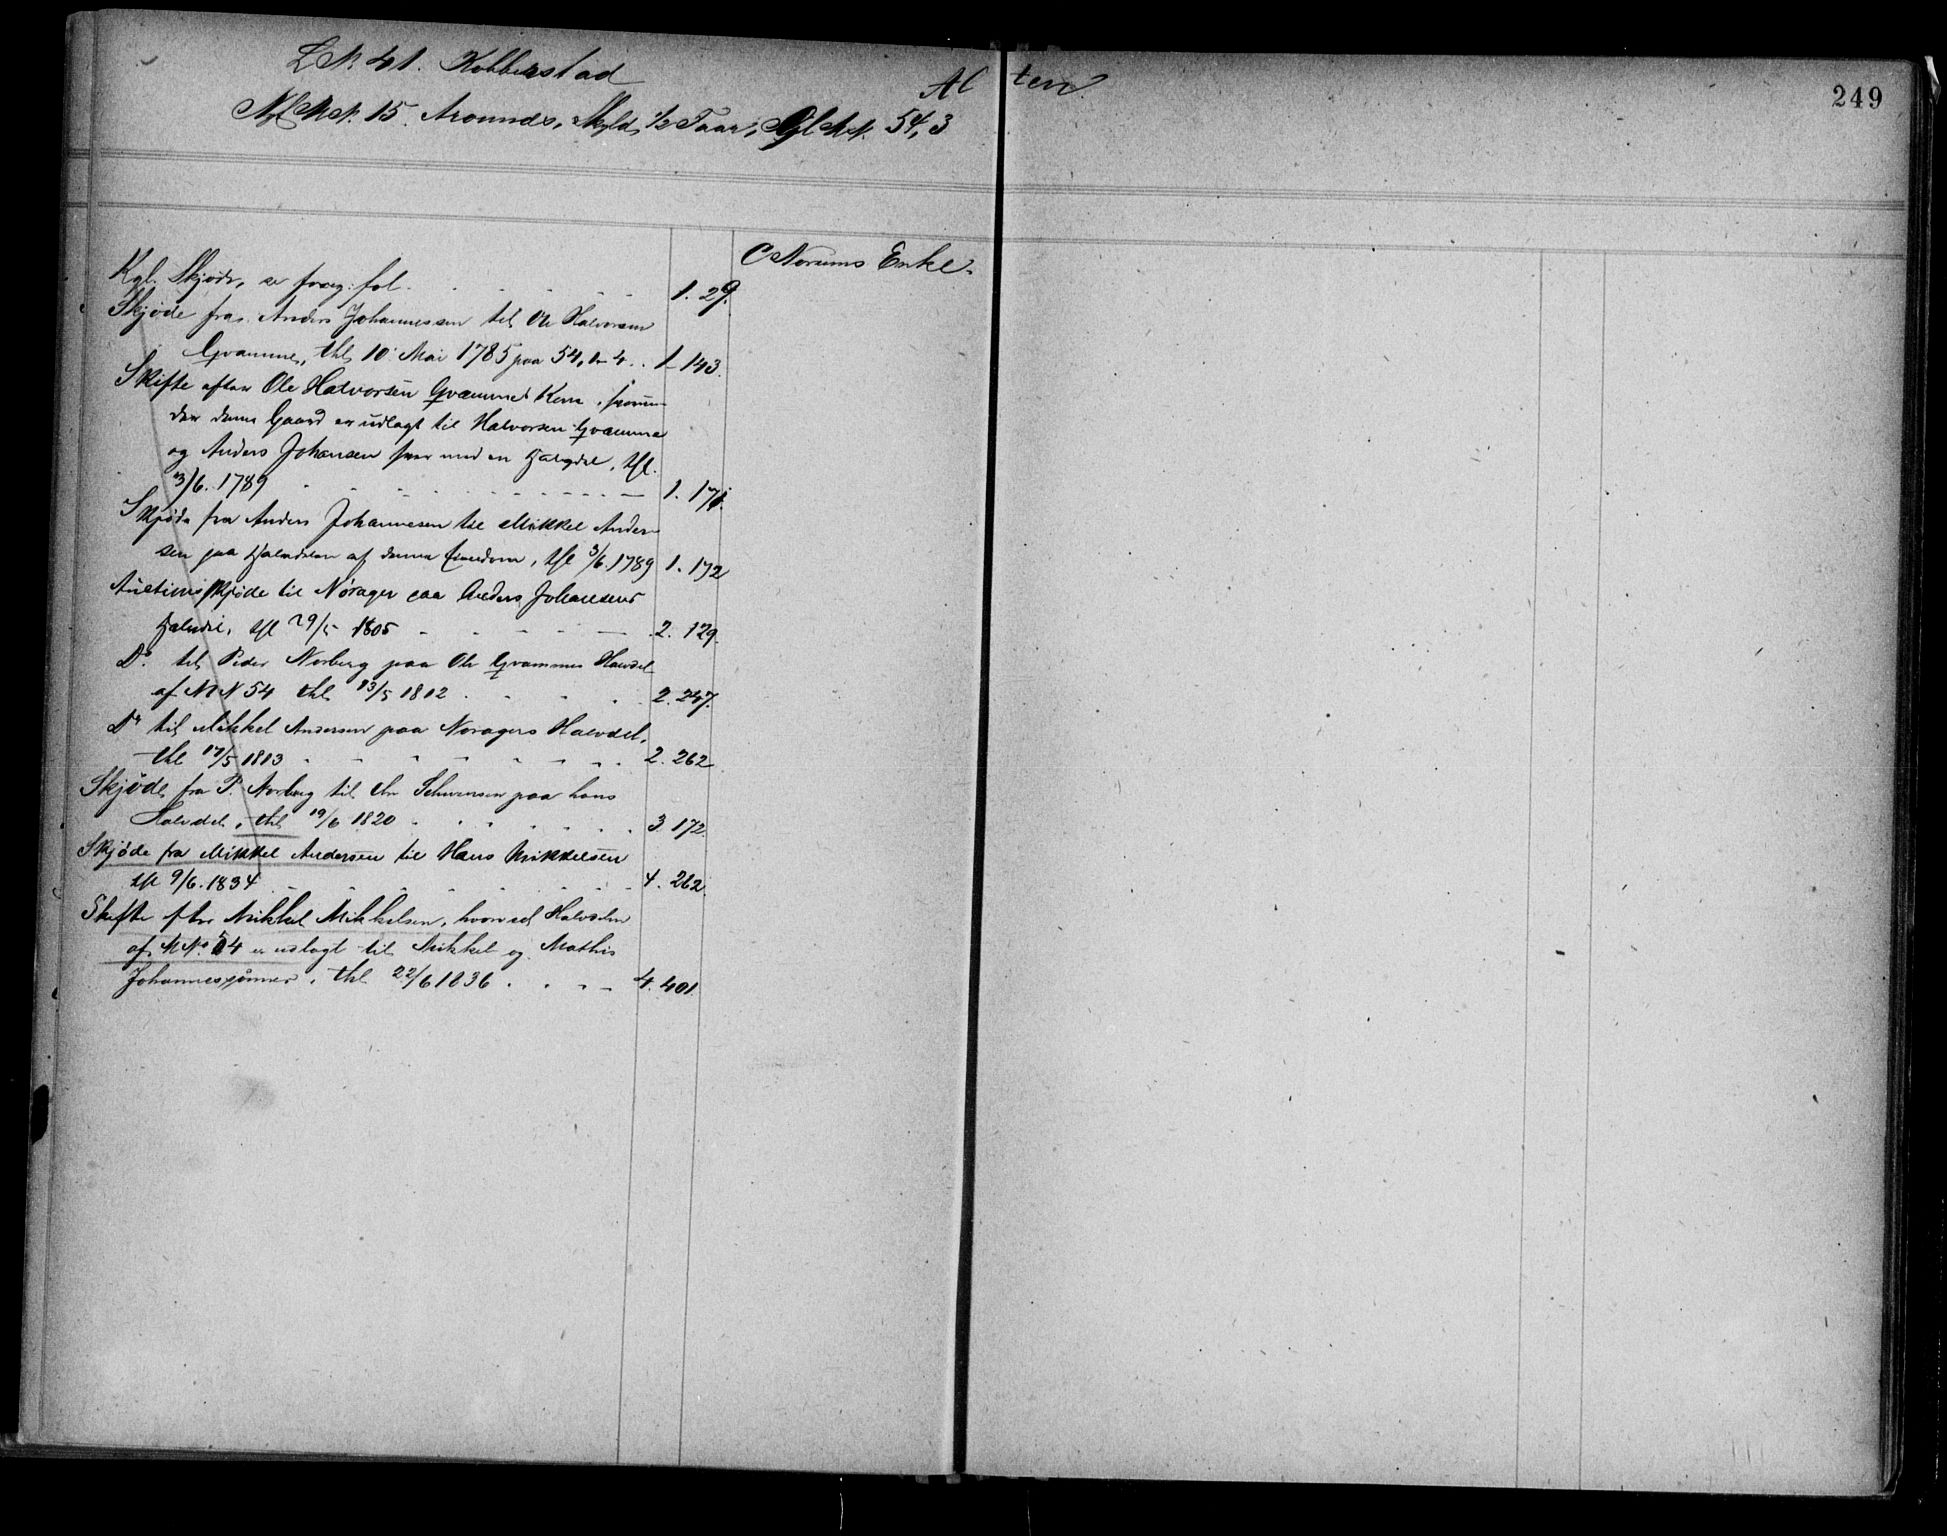 L N. 41. Kobberstad
Alten
249
Nyt M N. 15. Skyld, 1/2 Faar, Gl. M N. 54, 3
C Norums Enke.
Kgl. Skjøde, se foreg: fol. 1. 29.
Skjøde fra Anders Johannessen til Ole Halvorsen
Qvamme, thl 10 Mai 1785 paa 54, 4.. 1 143.
Skifte efter Ole Halvorsen Qvammes Kone, hvorun-
der denne Gaard er udlagt til Halvorsen Qvamme
og Anders Johansen hver med en Halvdel, thl.
3/6. 1789 1. 171.
Skjøde fra Anders Johannesen til Mikkel Ander-
sen paa Halvdelen af denne Eiendom, thl 3/6. 1789 1. 172
Auctionsskjøde til Norager paa Anders Johansens
Halvdel, thl 29/5 1805 2. 129.
Do. til Peder Norberg paa Ole Qvammes Halvdel
af M N 54 thl 13/5 1812 2. 247.
Do til Mikkel Andersen paa Noragers Halvdel,
thl 17/5 1813 2. 262
Skjøde fra P. Norberg til paa hans
Halvdel, thl 19/6 1820 3 172.
Skjøde fra Mikkel Andersen til Hans Mikkelsen
thl 9/6. 1834 4. 262.
Skifte efter Mikkel Mikkelsen, hvorved Halvdelen
af M No. 54 er udlagt til Mikkel og Mathis
Johannessønner, thl 22/6 1836 4. 401.